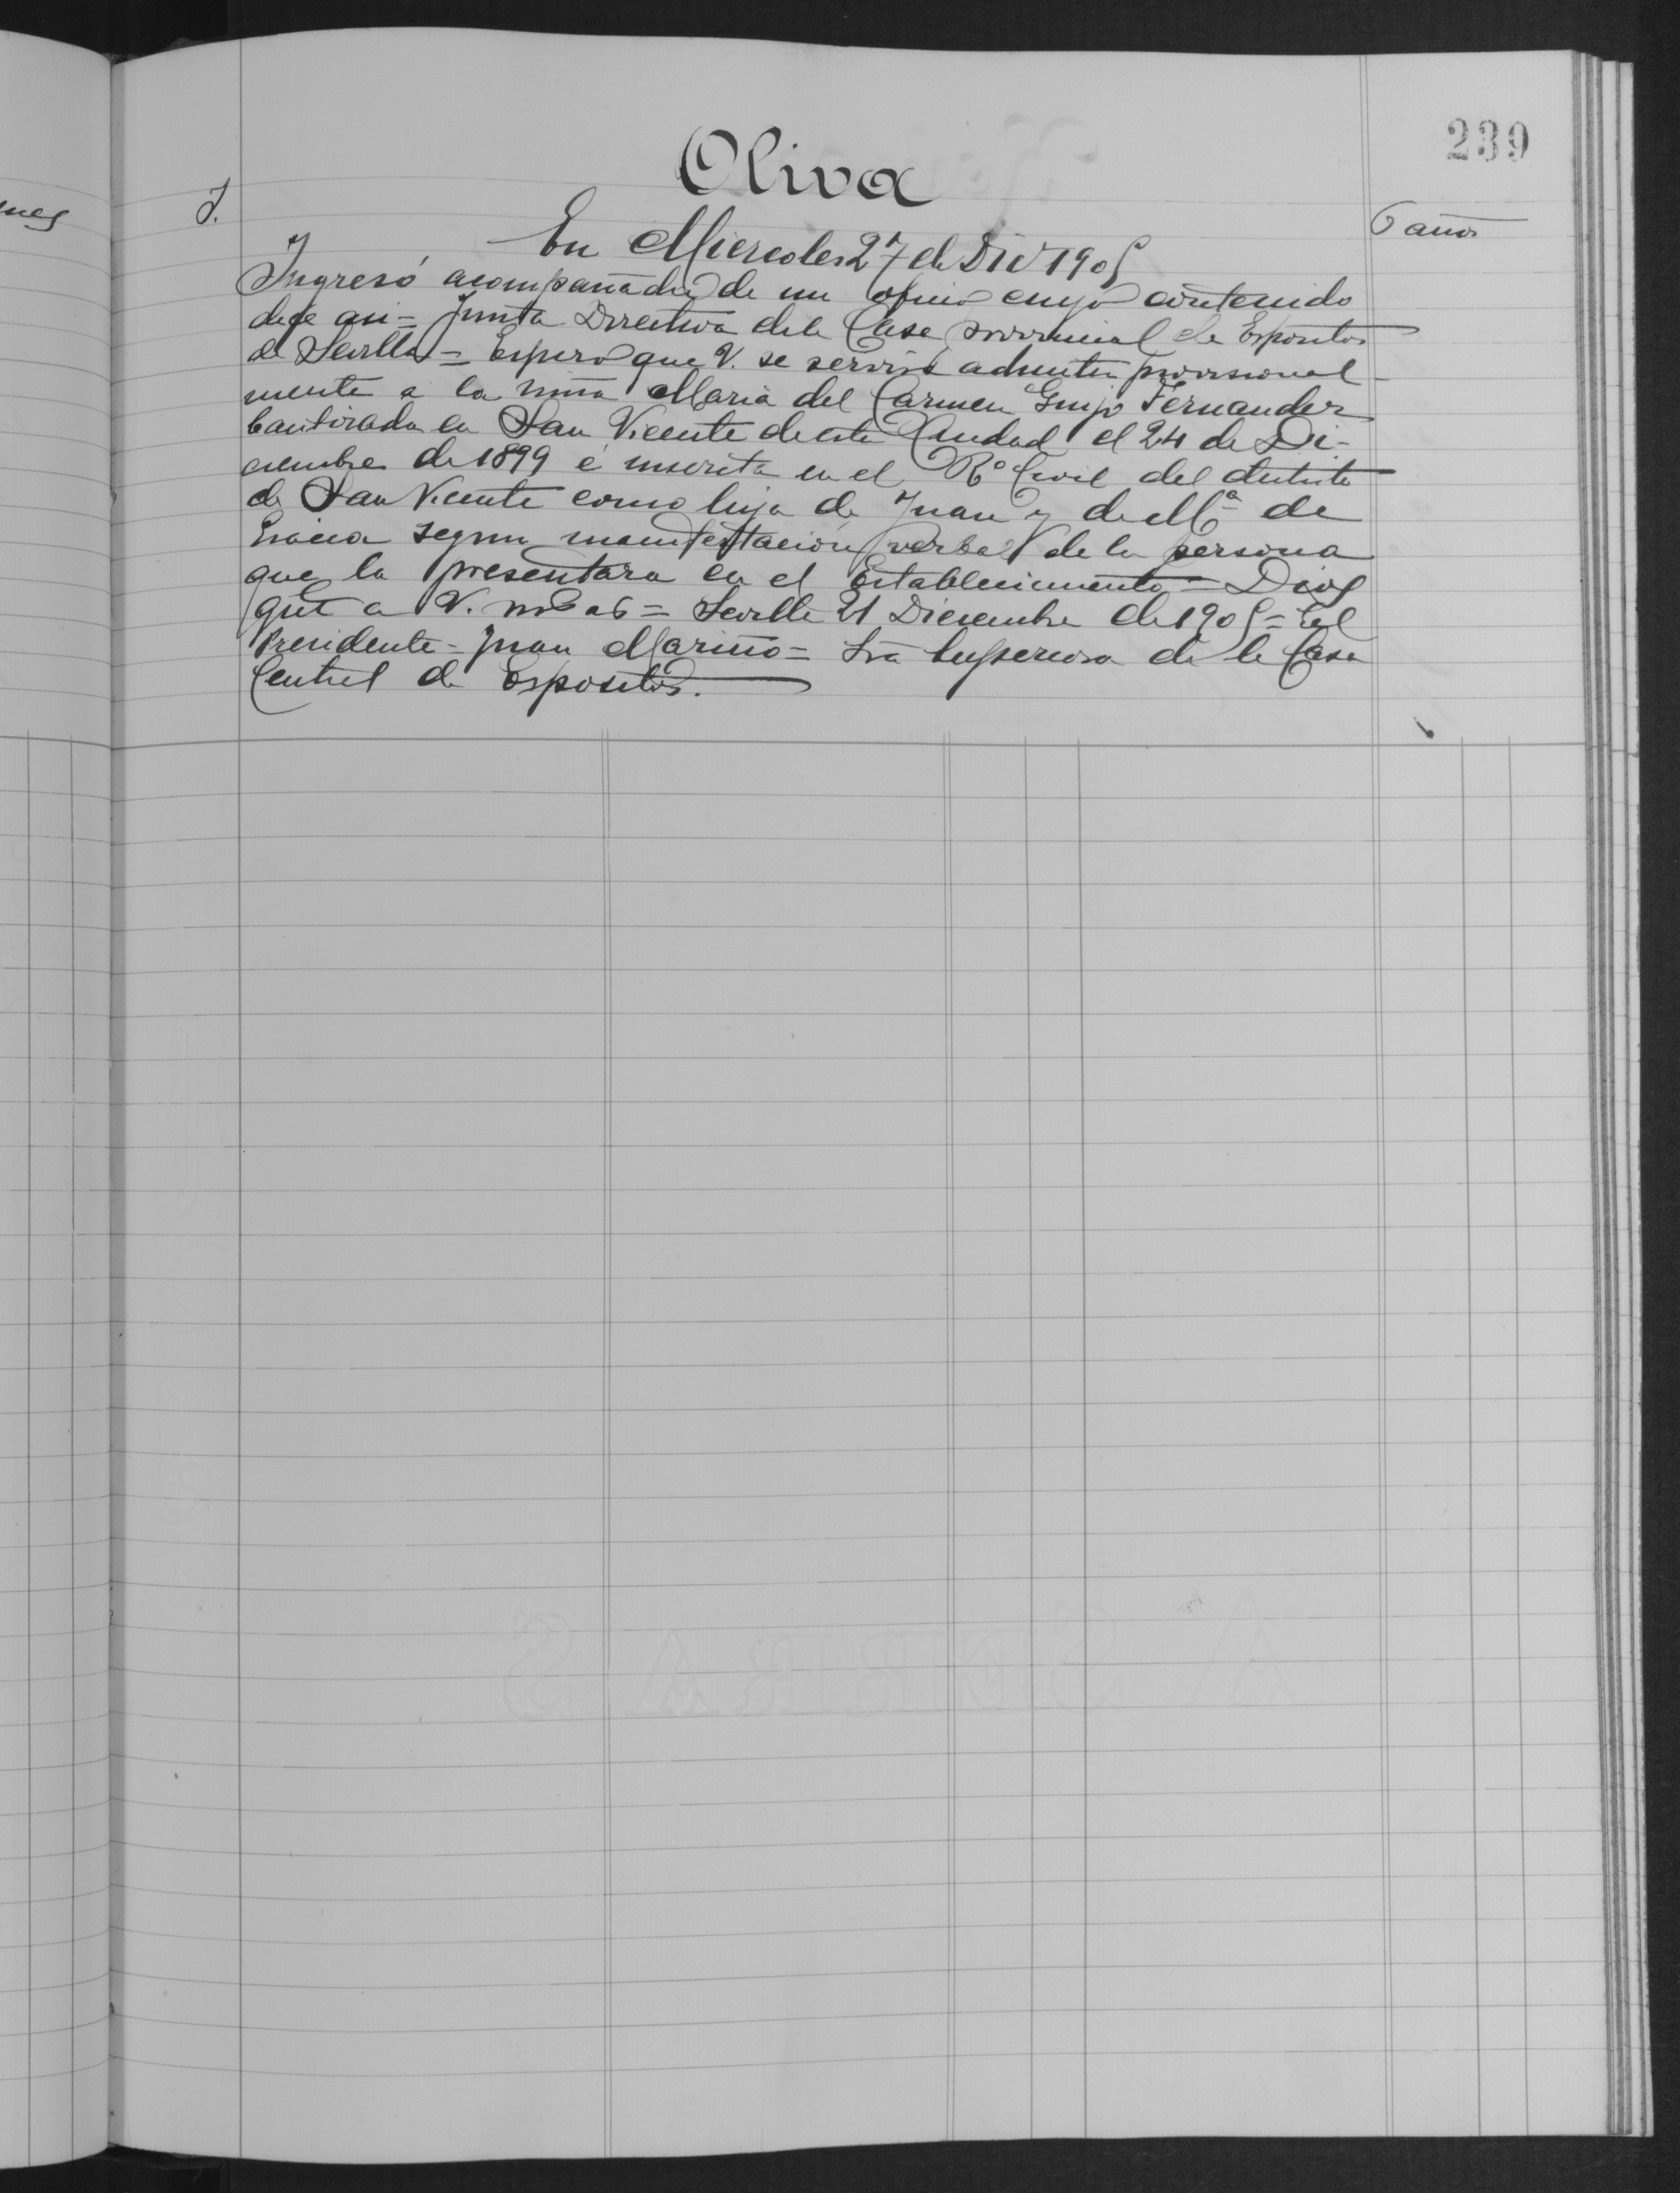 239
Oliva
J.
6 años
En Miercoles 27 de Dic 1905
Ingresó acompañada de un oficio cuyo contenido
dice asi = Junta Directiva de la Casa provincial de Espositos
de Sevilla = Espero que V. se servirá admitir provisional-
mente a la niña Maria del Carmen Guijo Fernandez
bautizada en San Vicente de esta Ciudad el 24 de Di-
ciembre de 1899 é inscrita en el Rº Civil del distrito
de San Vicente como hija de Juan y de Mª de
Gracia segun manifestación verbal de la persona
que la presentara en el Establecimiento = Dios
gue a V. ms as = Sevilla 21 Diciembre de 1905 = El
Presidente = Juan Mariño = Sra Superiora de la Casa
Central de Espositos.